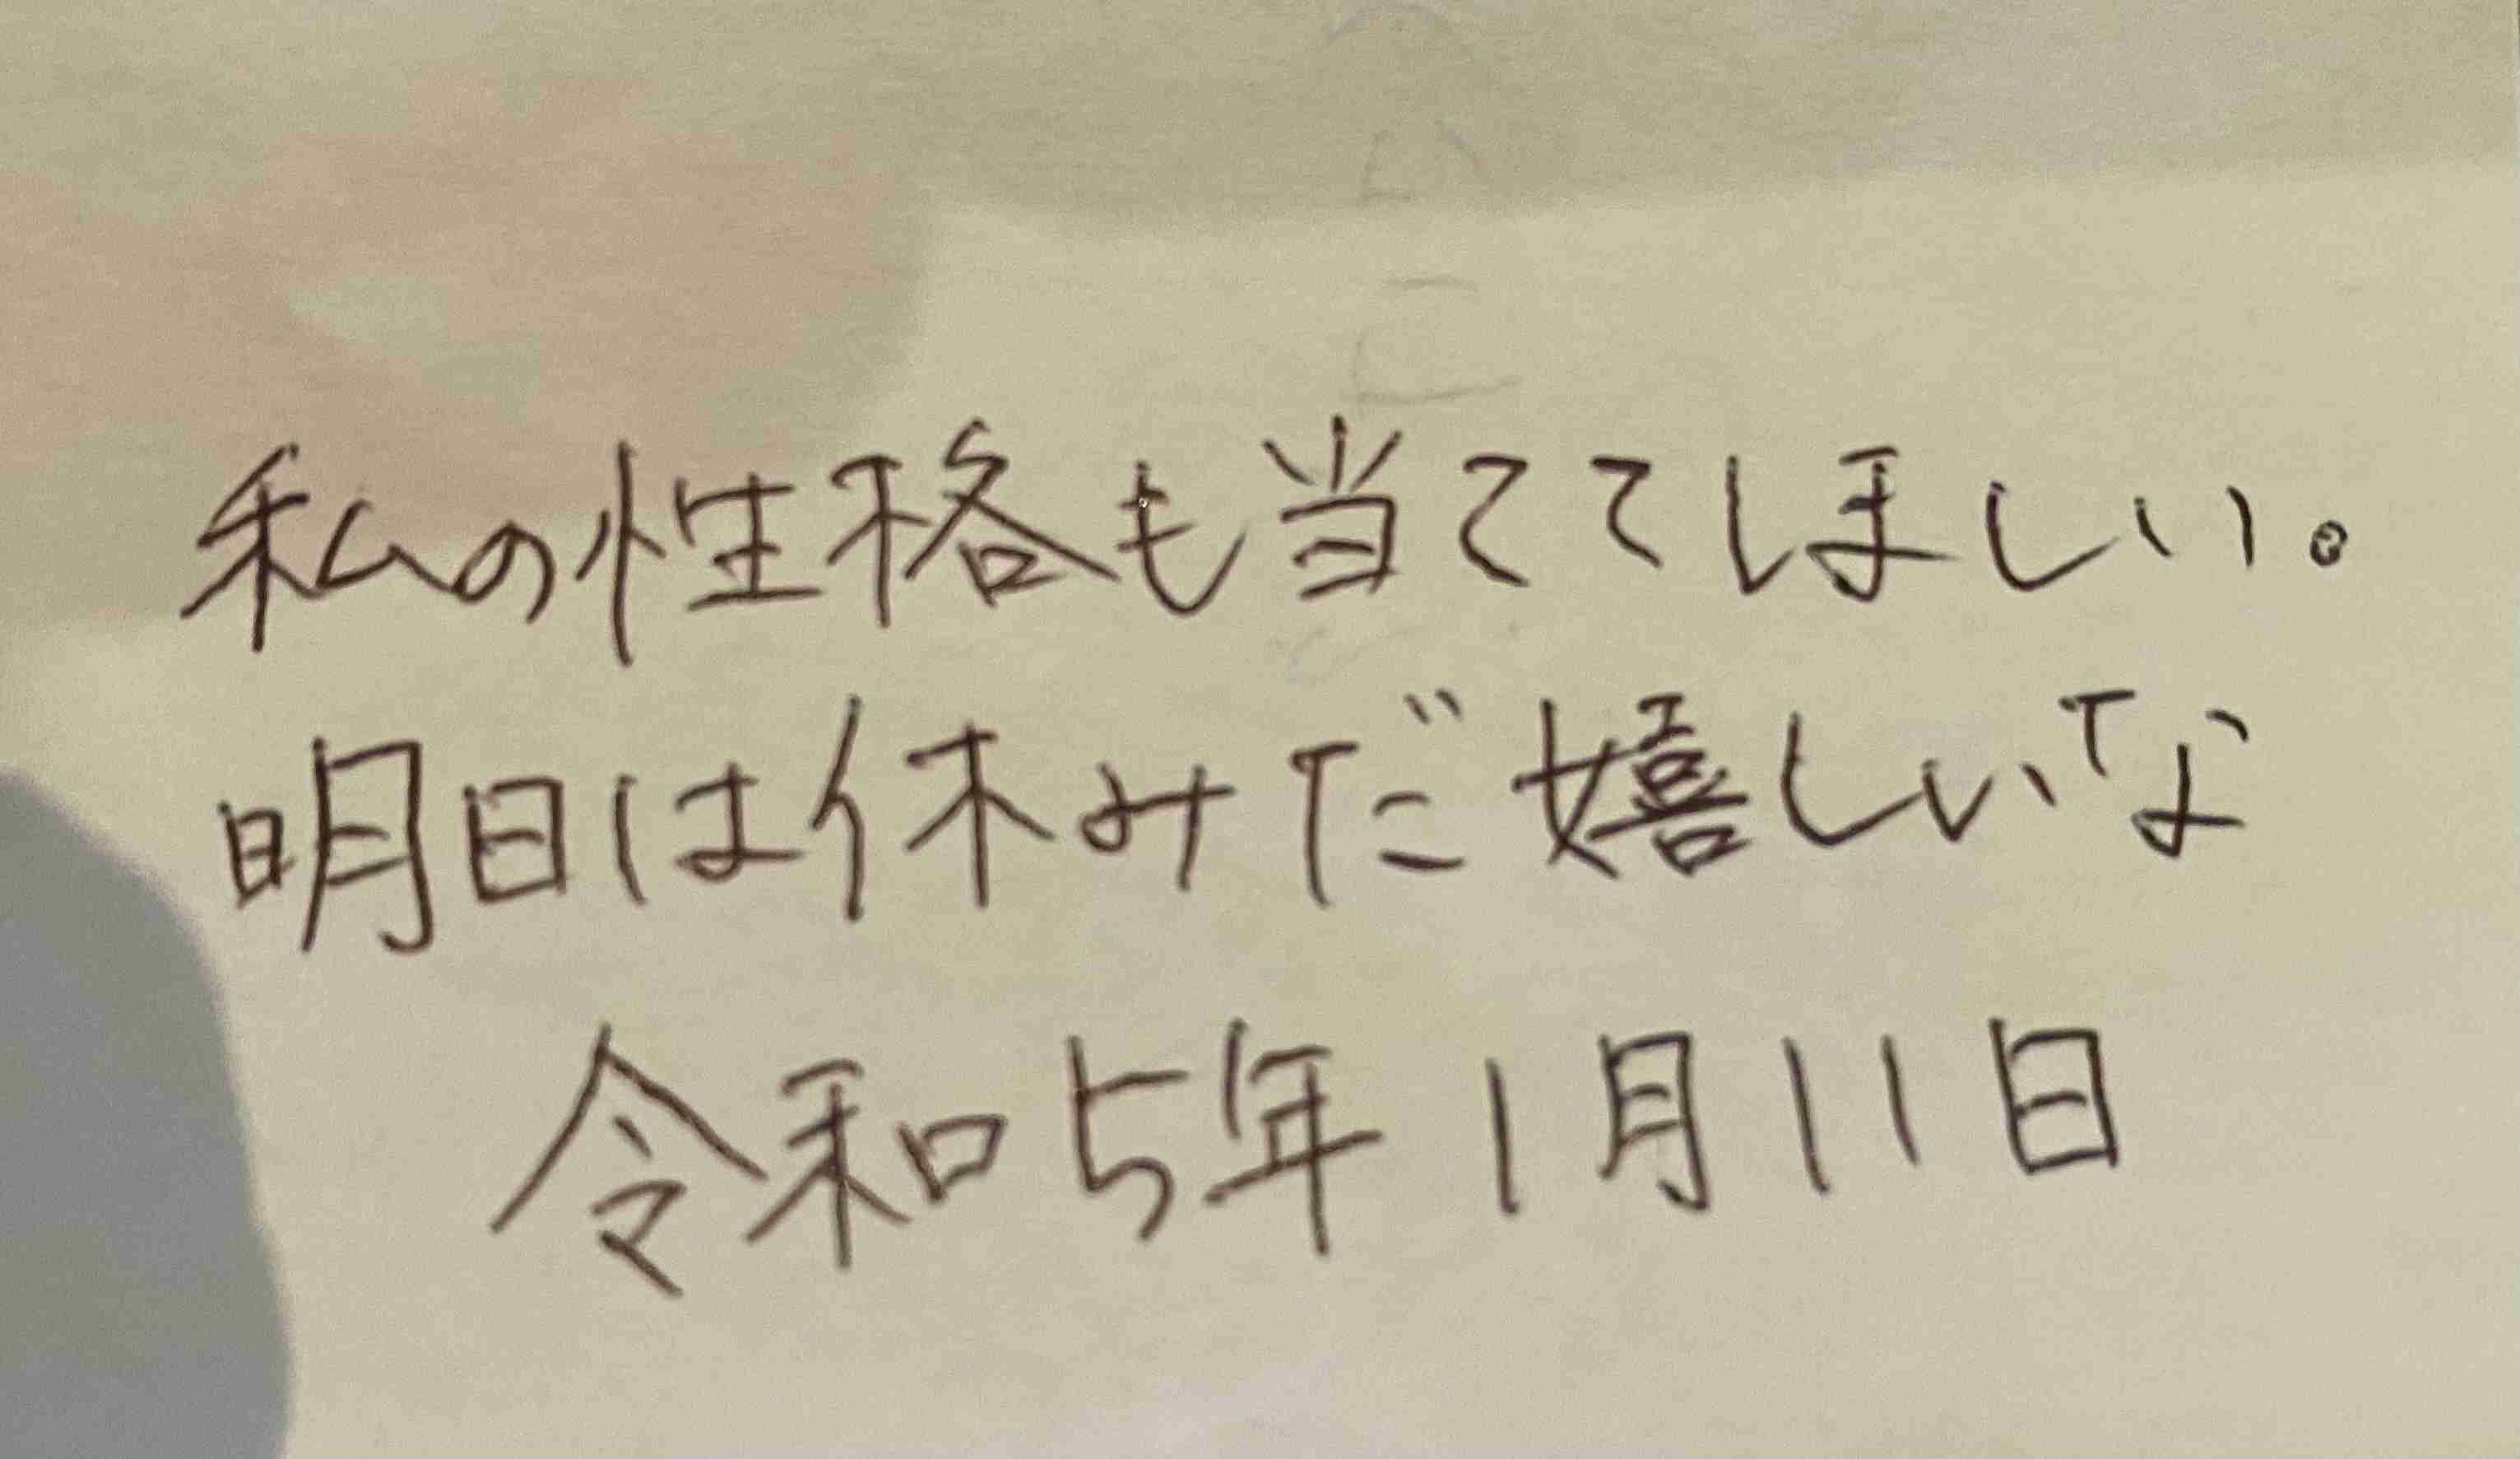 私の性格も当ててほしい。
明日は休みだ嬉しいな
令和5年1月11日